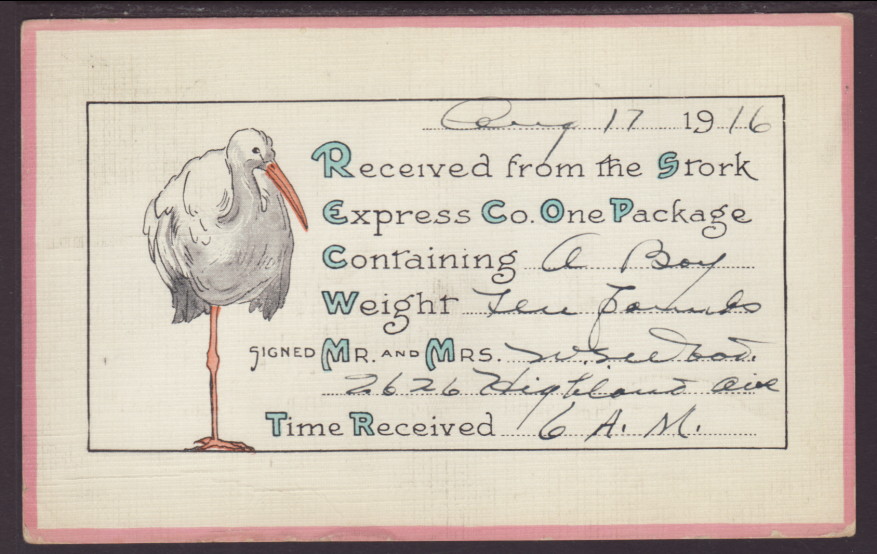 Aug 17 1916
Received from the Stork
Express Co. One Package
Containing A Boy
Weight Ten Pounds
SIGNED MR. AND MRS.
2626 Highland Ave
Time Received 6 A. M.